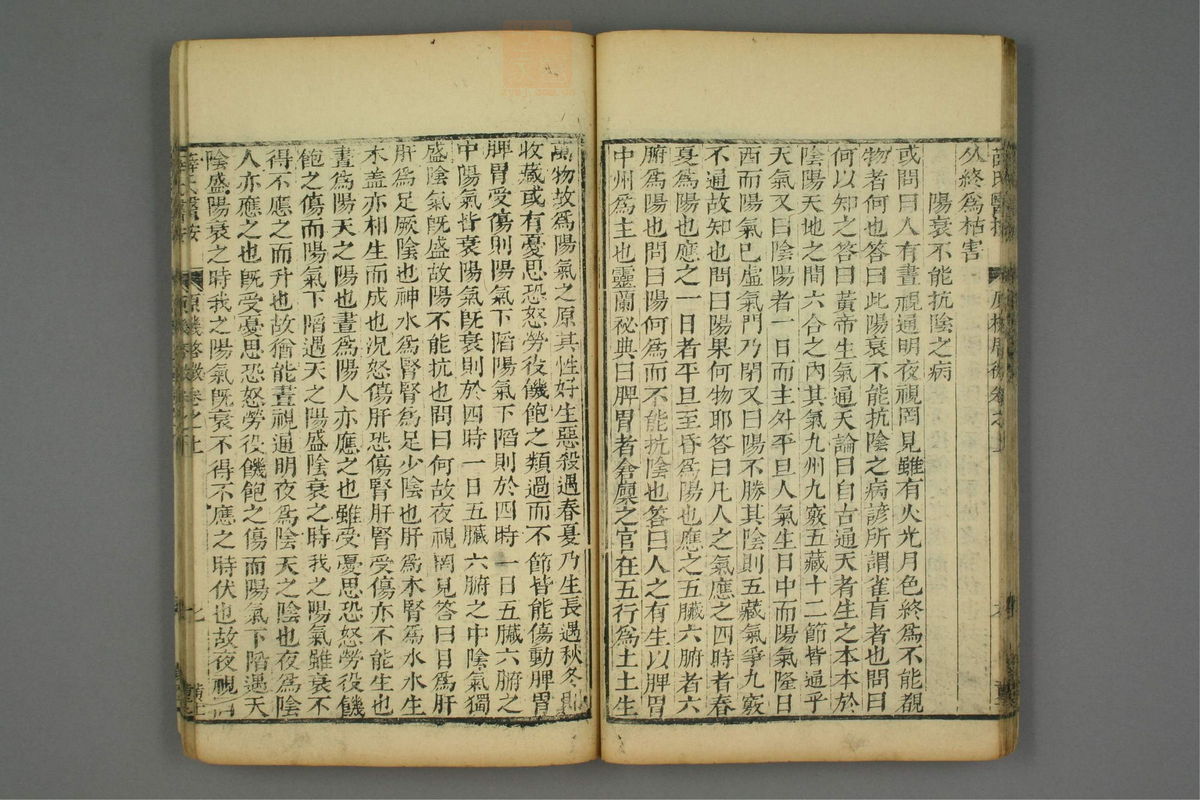 薛氏醫按 原機啟微卷之上
从終為枯害
陽衰不能抗陰之病
或問曰人有晝視通明夜視罔見雖有火光月色終為不能覩
物者何也答曰此陽衰不能抗陰之病諺所謂雀盲者也問曰
何以知之答曰黃帝生氣通天論曰自古通天者生之本本於
陰陽天地之間六合之內其氣九州九竅五藏十二節皆通乎
天氣又曰陰陽者一日而主外平旦人氣生日中而陽氣隆日
西而陽氣已虛氣門乃閉又曰陽不勝其陰則五藏氣爭九竅
不通故知也問曰陽果何物耶答曰凡人之氣應之四時者春
夏為陽也應之一日者平旦至昏為陽也應之五臟六腑者六
腑為陽也問曰陽何為而不能抗陰也答曰人之有生以脾胃
中州為主也靈蘭祕典曰脾胃者倉廩之官在五行為土土生
萬物故為陽氣之原其性好生惡殺遇春夏乃生長遇秋冬則
收藏或有憂思恐怒勞役饑飽之類過而不節皆能傷動脾胃
脾胃受傷則陽氣下陷陽氣下陷則於四時一日五臟六腑之
中陽氣皆衰陽氣既衰則於四時一日五臟六腑之中陰氣獨
盛陰氣既盛故陽不能抗也問曰何故夜視罔見答曰目為肝
肝為足厥陰也神水為腎腎為足少陰也肝為木腎為水水生
木蓋亦相生而成也況怒傷肝恐傷腎肝腎受傷亦不能生也
晝為陽天之陽也晝為陽人亦應之也雖受憂思恐怒勞役饑
飽之傷而陽氣下陷遇天之陽盛陰衰之時我之陽氣雖衰不
得不應之而升也故猶能晝視通明夜為陰天之陰也夜為陰
人亦應之也既受憂思恐怒勞役饑飽之傷而陽氣下陷遇天
陰盛陽衰之時我之陽氣既衰不得不應之時伏也故夜視罔
薛氏醫按 原機啟微卷之上 七